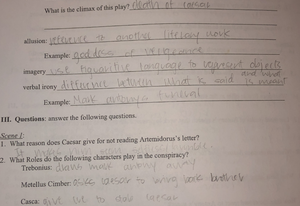 What is the climax of this play? death of caesar
allusion: reference to another literary work
Example: goddess of vengeance
imagery use figurative language to represent objects
verbal irony difference between what is said and what is meant
Example: Mark antonys funeral
III. Questions: answer the following questions.
Scene I:
1. What reason does Caesar give for not reading Artemidorus's letter?
2. What Roles do the following characters play in the conspiracy?
Trebonius: draws mark antony away
Metellus Cimber: asks caesar to bring back brother
Casca: first one to stab caesar